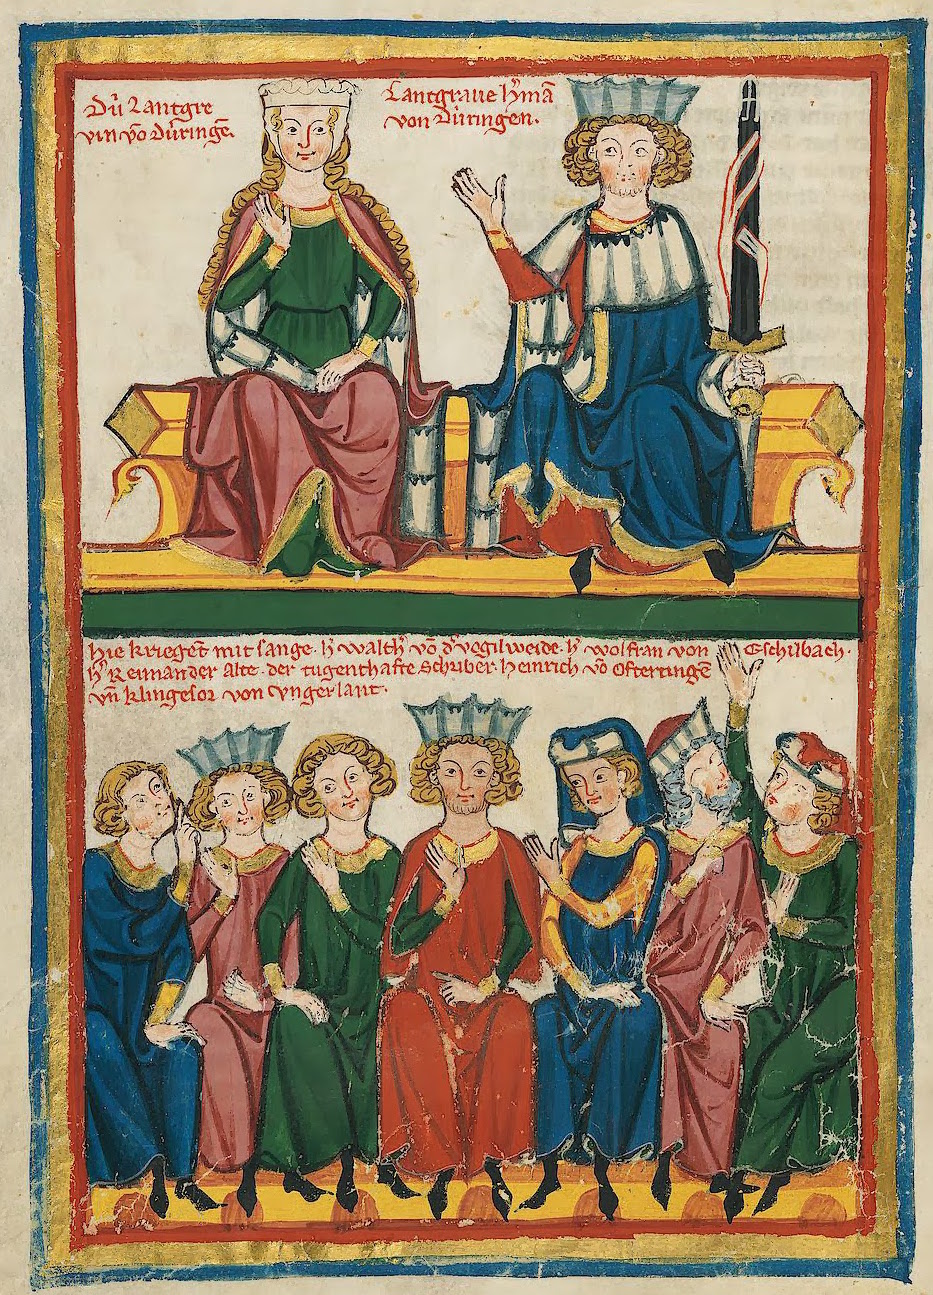 Dú Lantgre
vin võ Dúringẽ.
Lantgraue h̾mã
von Dúringen.
hie krieget̃ mit sange. h̾ walth̾ võ d̾ vogilweide. h̾ wolfran von Eschilbach.
h̾ Reinman der Alte. der tugenthafte Schriber. heinrich võ Ofteringẽ
vñ klingesor von vngerlant.